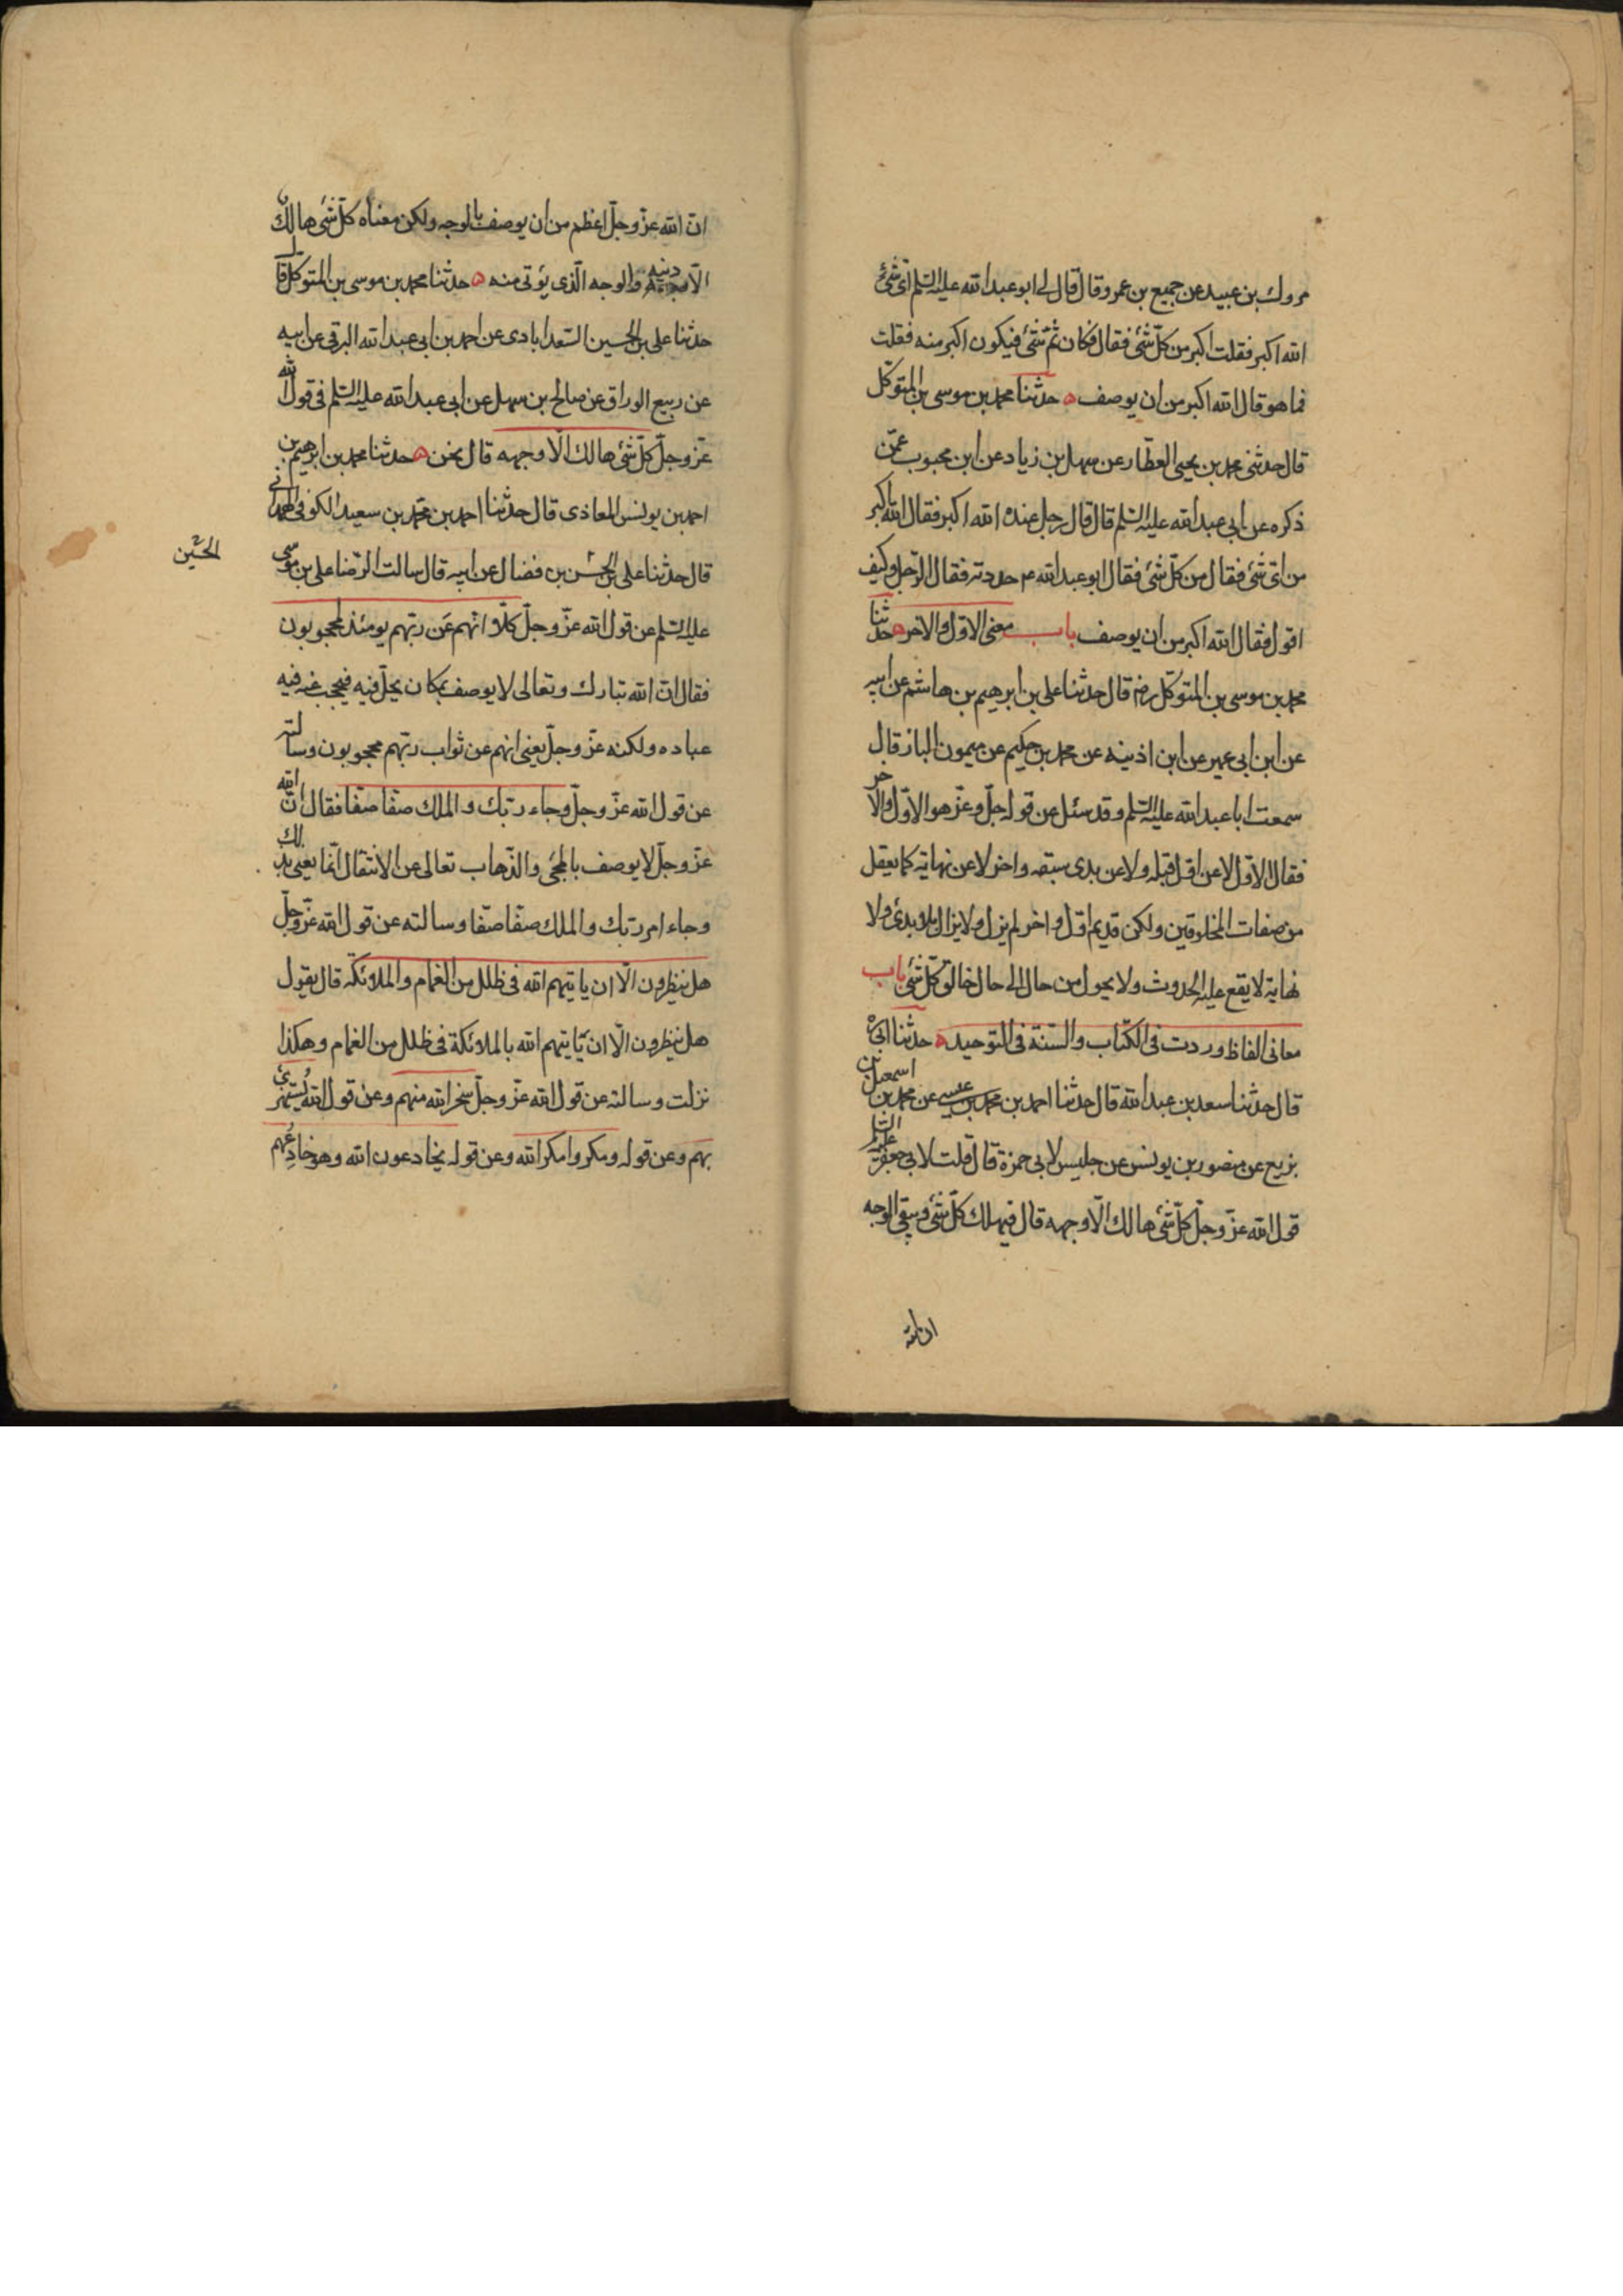 مروك بن عبيد عن جميع بن عمرو قال قال لى ابو عبد الله عليه السّلم اىّ شئ
الله اكبر فقلت اكبر من كلّ شئ فقال فكان ثمّ شئ فيكون اكبر منه فقلت
فما هو قال الله اكبر من ان يوصف ه حدثنا محمد بن موسى بن المتوكّل
قال حدثنى محمد بن يحيى العطّار عن سهل بن زياد عن ابن محبوب عمّن
ذكره عن ابى عبد الله عليه السّلم قال قال رجل عنده الله اكبر فقال الله اكبر
من اىّ شئ فقال من كلّ شئ فقال ابو عبد الله ع حددته فقال الرّجل وكيف
اقول فقال الله اكبر من ان يوصف باب معنى الاوّل والاخر ه حدثنا
محمد بن موسى بن المتوكّل رضه قال حدثنا على بن ابرهيم بن هاشم عن ابيه
عن ابن ابى عمير عن ابن اذينه عن محمد بن حكيم عن ميمون الباز قال
سمعت ابا عبد الله عليه السّلم وقد سئل عن قوله جلّ وعزّ هو الاوّل والاخر
فقال الاوّل لا عن اوّل قبله ولا عن بدى سبقه واخر لا عن نهاية كما يعقل
من صفات المخلوقين ولكن قديم اوّل واخر لم يزل ولا يزال بلا بدئ ولا
نهاية لا يقع عليه الحدوث ولا يحول من حال الى حال خالق كلّ شئ باب
معانى الفاظ وردت فى الكتاب والسّنة فى التوحيد ه حدثنا ابى ره
قال حدثنا سعد بن عبد الله قال حدثنا احمد بن محمد بن عيسى عن محمد بن اسمعيل بن
بزيع عن منصور بن يونس عن جليس لابى حمزة قال قلت لابى جعفر عليه السّلم
قول الله عزّ وجلّ كلّ شئ هالك الّا وجهه قال فيهلك كلّ شئ ويبقى الوجه
ان الله
انّ الله عزّ وجلّ اعظم من ان يوصف بالوجه ولكن معناه كلّ شئ هالك
الّا دينه والوجه الّذى يؤتى منه ه حدثنا محمد بن موسى بن المتوكّل قال
حدثنا على بن الحسين السّعدابادى عن احمد بن ابى عبد الله البرقى عن ابيه
عن ربيع الوراق عن صالح بن سهل عن ابى عبد الله عليه السّلم فى قول الله
عزّ وجلّ كلّ شئ هالك الّا وجهه قال نحن ه حدثنا محمد بن ابرهيم بن
احمد بن يونس المعاذى قال حدثنا احمد بن محمّد بن سعيد الكوفى الهمدانى
قال حدثنا على بن الحسن بن فضال عن ابيه قال سالت الرّضا على بن موسى
الحسين
عليه السّلم عن قول الله عزّ وجلّ كلّا انّهم عن ربّهم يومئذ لمحجوبون
فقال انّ الله تبارك وتعالى لا يوصف بمكان يحلّ فيه فيحجب عنه فيه
عباده ولكنه عزّ وجلّ يعنى انهم عن ثواب ربّهم محجوبون وسالته
عن قول الله عزّ وجلّ وجاء ربّك والملك صفّا صفّا فقال انّ الله
عزّ وجلّ لا يوصف بالمجئ والذّهاب تعالى عن الانتقال انّما يعنى بذلك
وجاء امر ربّك والملك صفّا صفّا وسالته عن قول الله عزّ وجلّ
هل ينظرون الّا ان ياتيهم الله فى ظلل من الغمام والملائكة قال يقول
هل ينظرون الّا ان ياتيهم الله بالملائكة فى ظلل من الغمام وهكذا
نزلت وسالته عن قول الله عزّ وجلّ سخر الله منهم وعن قول الله يستهزئ
بهم وعن قوله ومكروا مكر الله وعن قوله يخادعون الله وهو خادعهم